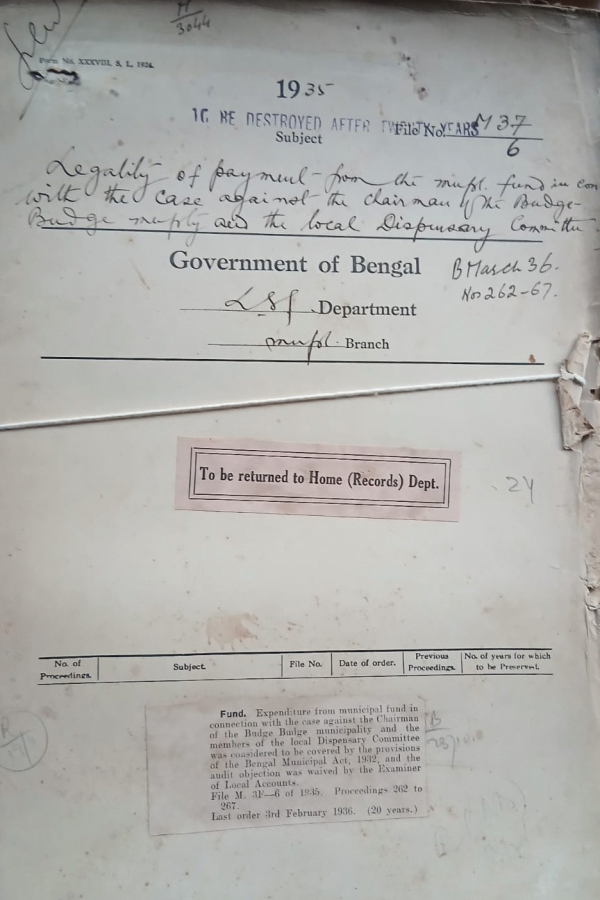 M
3044
Form No. XXXVIII, S. L. 1924.
1935
TO BE DESTROYED AFTER TWENTY YEARS
File No. M 37
6
Subject
Legality of payment from the mupl. fund in con
with the case against the chairman of the Budge-
Budge muply and the local Dispensary Committee
Government of Bengal
B March 36.
Nos 262-67.
LSG Department
mupl. Branch
To be returned to Home (Records) Dept.
24
No. of Proceedings.
Subject.
File No.
Date of order.
Previous Proceedings.
No. of years for which to be Preserved.
Fund. Expenditure from municipal fund in
connection with the case against the Chairman
of the Budge Budge municipality and the
members of the local Dispensary Committee
was considered to be covered by the provisions
of the Bengal Municipal Act, 1932, and the
audit objection was waived by the Examiner
of Local Accounts.
File M. 3F—6 of 1935. Proceedings 262 to
267.
Last order 3rd February 1936. (20 years.)
B